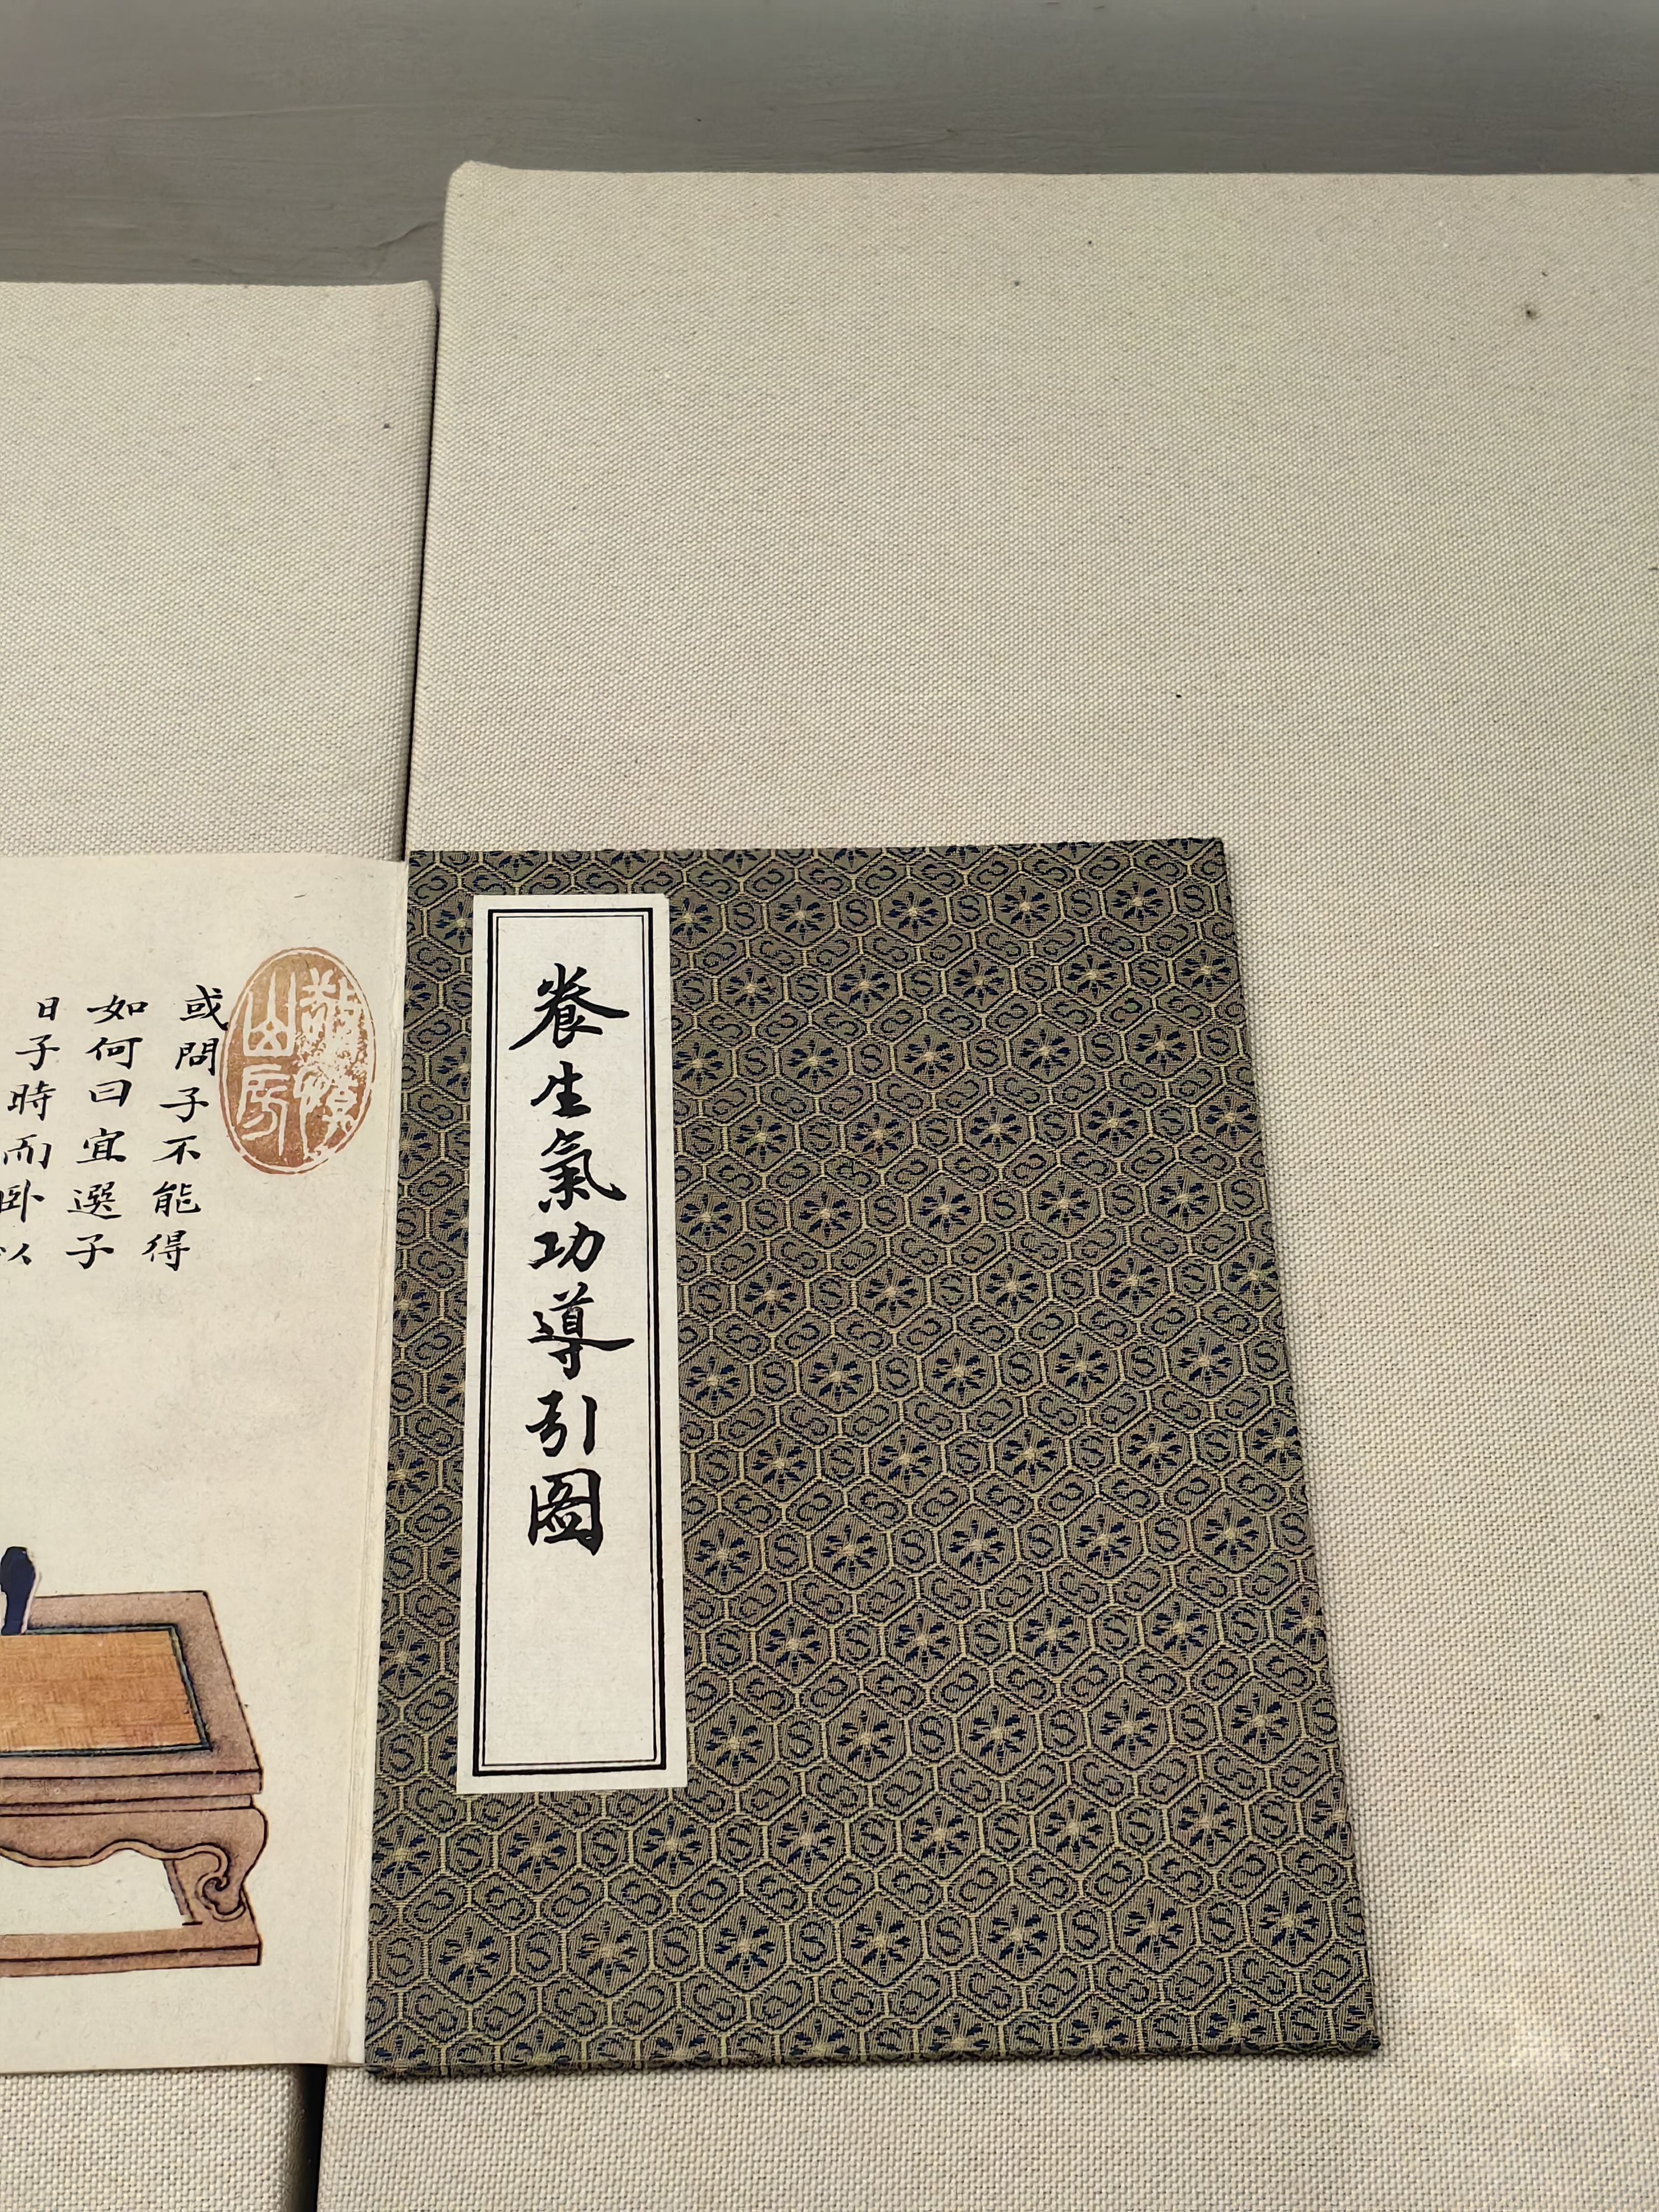 養生氣功導引圖
或問子不能得
如何曰宜選子
日子時而卧以
山房